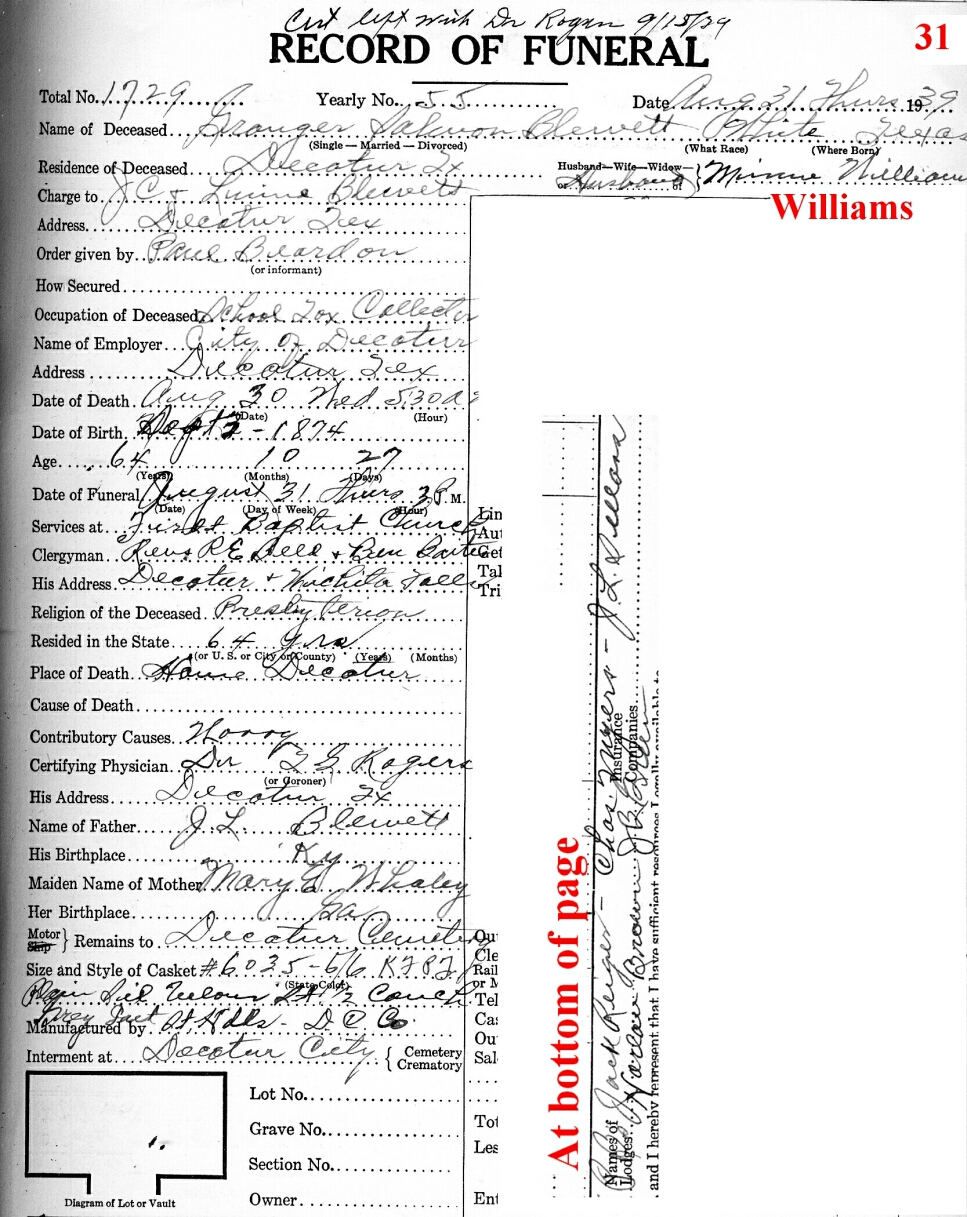 Cert left with Dr Rogan 9/15/39
31
RECORD OF FUNERAL
Total No. 1729 Yearly No. 55 Date Aug 31 Thurs 1939
Name of Deceased Granger Salmon Blewett White Texas
(Single — Married — Divorced) (What Race) (Where Born)
Residence of Deceased Decatur Tx Husband—Wife—Widow— or Husband of } Minnie William
Charge to J C & Linnie Blewett
Williams
Address Decatur Tex
Order given by Paul Beardon
(or informant)
How Secured
Occupation of Deceased School Tax Collector
Name of Employer City of Decatur
Address Decatur Tex
Date of Death Aug 30 Wed 5:30 a
(Date) (Hour)
Date of Birth Sept 2 - 1874
Age 64 10 27
(Years) (Months) (Days)
Date of Funeral August 31 Thurs 3 P. M.
(Date) (Day of Week) (Hour)
Services at First Baptist Church
Clergyman Revs R E Bell + Ben
His Address Decatur + Wichita Falls
Religion of the Deceased Presbyterian
Resided in the State 64 yrs
(or U. S. or City or County) (Years) (Months)
Place of Death Home Decatur
Cause of Death
Contributory Causes
Certifying Physician Dr L G Rogers
(or Coroner)
His Address Decatur Tx
Name of Father J. L. Blewett
His Birthplace Ky
Maiden Name of Mother Mary E Whaley
Her Birthplace Ga
Motor Ship } Remains to Decatur Cemetery
Size and Style of Casket #6035-6/6 K
(State Color)
Plain Couch
Grey
Manufactured by D C Co
Interment at Decatur City { Cemetery Crematory
Lot No.
Grave No.
Section No.
Owner
Diagram of Lot or Vault
1.
Lin
Aut
Get
Tal
Tri
Ou
Cle
Rail
or M
Tel
Cas
Ou
Sal
Tot
Les
Ent
At bottom of page
Jack Renger - Chas Myers - J. L.
Names of Lodges Harlan Brown Insurance Companies J B
and I hereby represent that I have sufficient resources legally available to